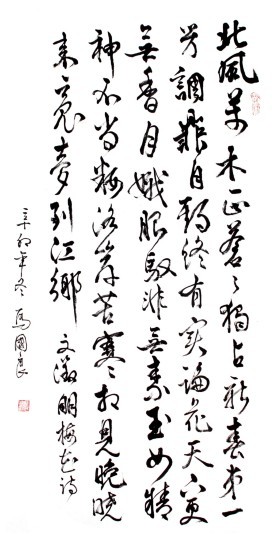 北風萬木正蒼々獨占新春第一
芳調鼎自期終有實論花天下更
無香月娥服馭非無素玉女精
神不尚粧洛岸苦寒相見晚曉
来魂夢到江鄉 文徵明梅花詩
辛卯年冬 馬國良